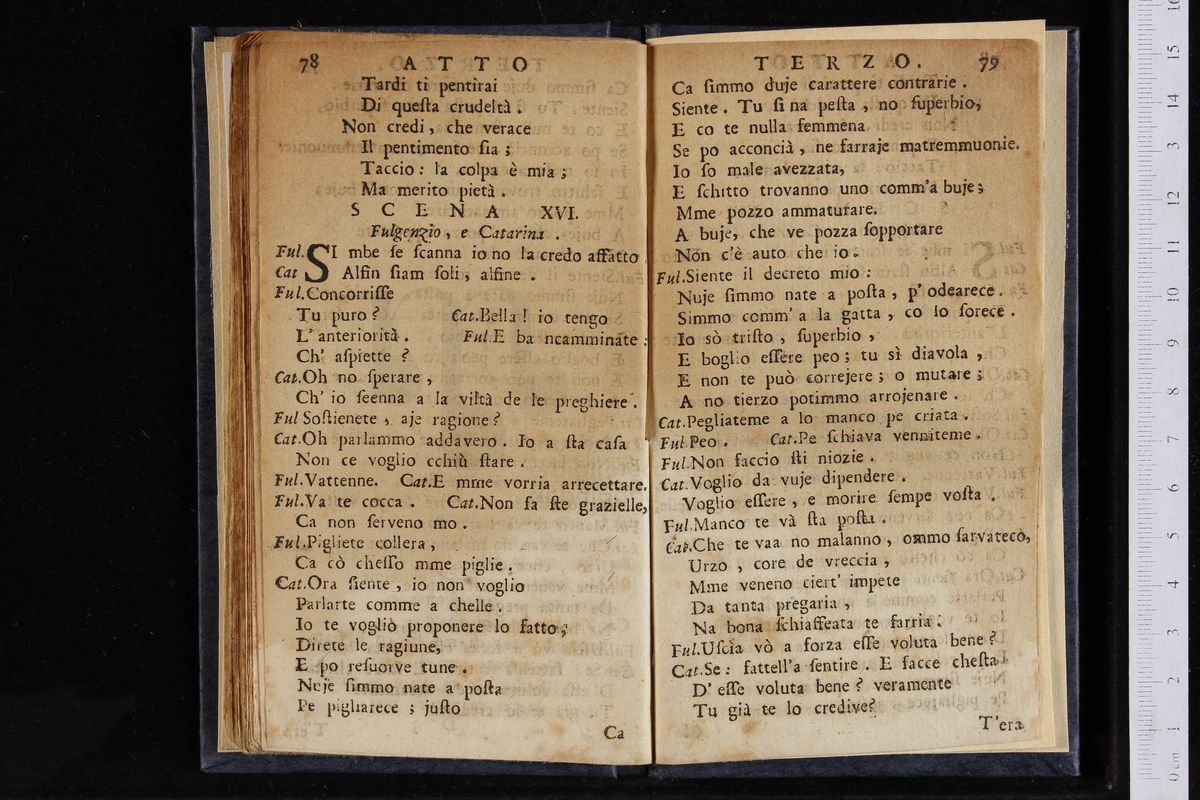 78 ATTO
Tardi ti pentirai
Di queſta crudeltà.
Non credi, che verace
Il pentimento ſia;
Taccio: la colpa è mia;
Ma merito pietà.
SCENA XVI.
Fulgenzio, e Catarina.
Ful. SI mbe ſe ſcanna io no la credo affatto.
Cat Alfin ſiam ſoli, alfine.
Ful. Concorriſſe
Tu puro? Cat. Bella! io tengo
L' anteriorità. Ful. E ba ncamminate:
Ch' aſpiette?
Cat. Oh no ſperare,
Ch' io ſcenna a la viltà de le preghiere.
Ful Soſtienete, aje ragione?
Cat. Oh parlammo addavero. Io a ſta caſa
Non ce voglio cchiù ſtare.
Ful. Vattenne. Cat. E mme vorria arrecettare.
Ful. Va te cocca. Cat. Non fa ſte grazielle,
Ca non ſerveno mo.
Ful. Pigliete collera,
Ca cò cheſſo mme piglie.
Cat. Ora ſiente, io non voglio
Parlarte comme a chelle.
Io te vogliò proponere lo fatto;
Direte le ragiune,
E po reſuorve tune.
Nuje ſimmo nate a poſta
Pe pigliarece; juſto
Ca
TERZO. 79
Ca ſimmo duje carattere contrarie.
Siente. Tu ſi na peſta, no ſuperbio,
E co te nulla femmena
Se po acconcià, ne farraje matremmuonie.
Io ſo male avezzata,
E ſchitto trovanno uno comm'a buje;
Mme pozzo ammaturare.
A buje, che ve pozza ſopportare
Non c'è auto che io.
Ful. Siente il decreto mio:
Nuje ſimmo nate a poſta, p' odearece.
Simmo comm' a la gatta, co lo ſorece.
Io sò triſto, ſuperbio,
E boglio eſſere peo; tu sì diavola,
E non te può correjere; o mutare;
A no tierzo potimmo arrojenare.
Cat. Pegliateme a lo manco pe criata.
Ful. Peo. Cat. Pe ſchiava venniteme.
Ful. Non faccio ſti niozie.
Cat. Voglio da vuje dipendere.
Voglio eſſere, e morire ſempe voſta.
Ful. Manco te và ſta poſta.
Cat. Che te vaa no malanno, ommo ſarvateco,
Urzo, core de vreccia,
Mme veneno ciert' impete
Da tanta pregaria,
Na bona ſchiaffeata te farria.
Ful. Uſcìa vò a forza eſſe voluta bene?
Cat. Se: fattell'a ſentire. E facce cheſta
D' eſſe voluta bene? veramente
Tu già te lo credive?
T'era